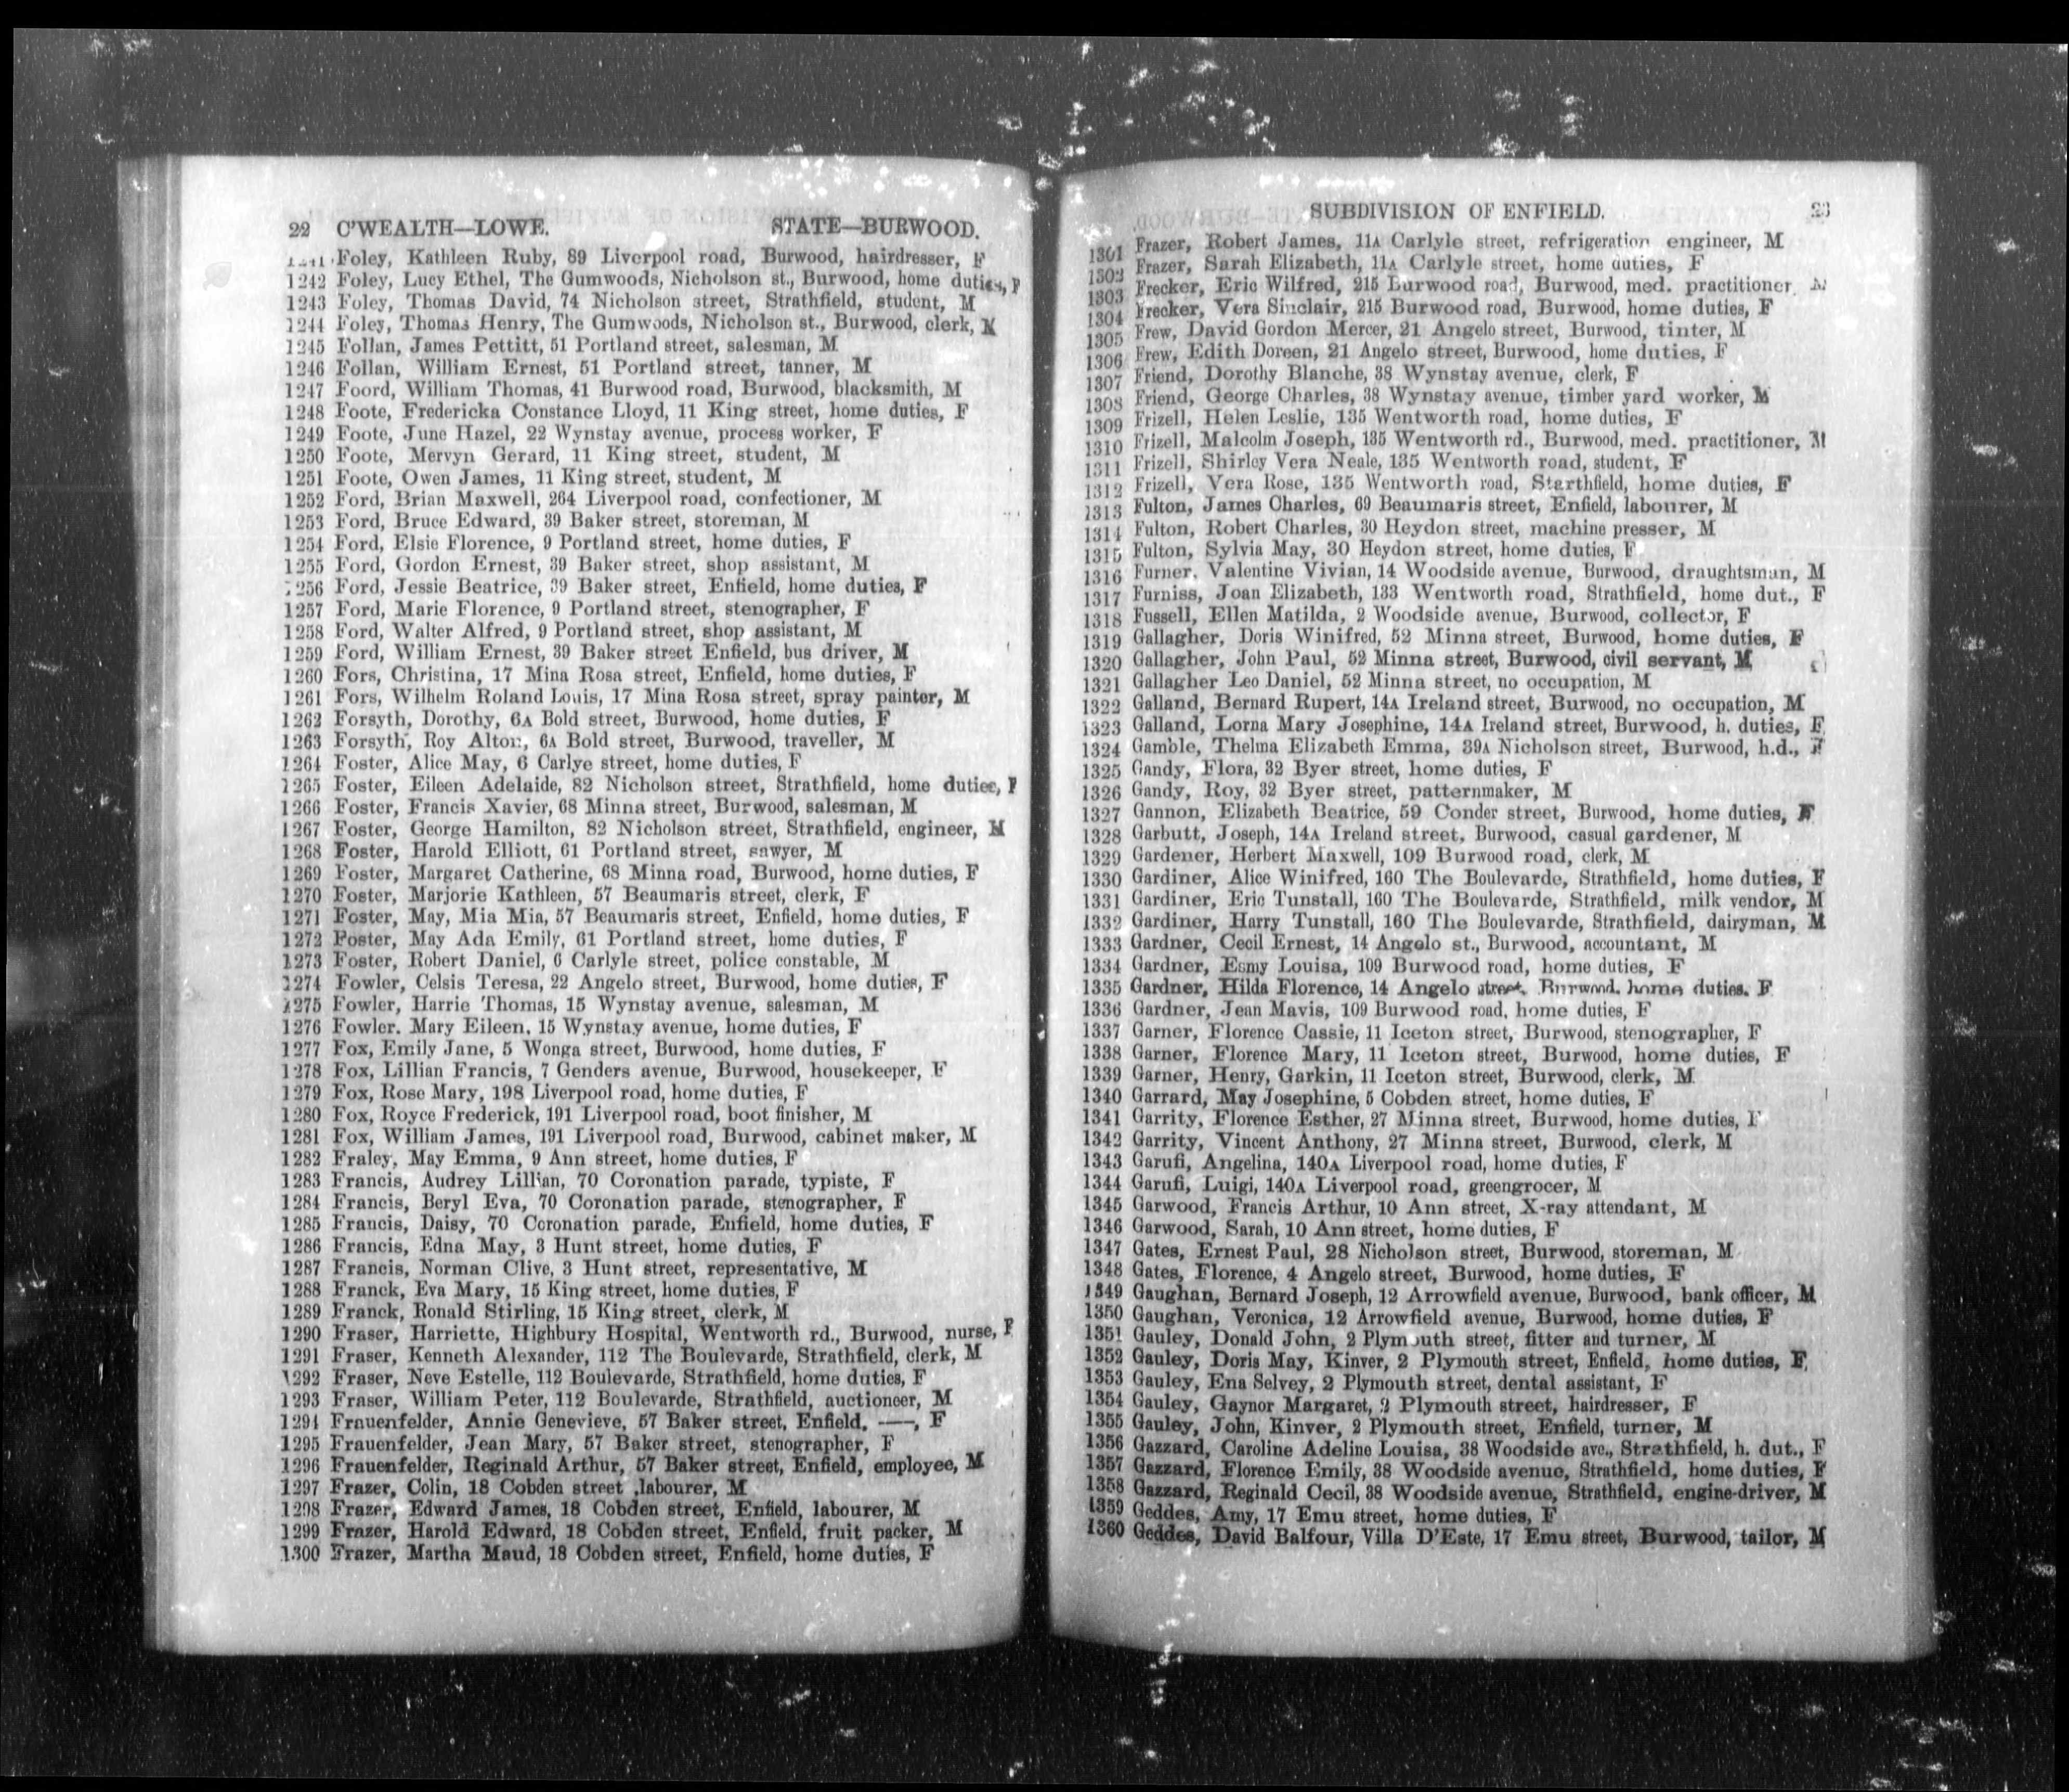 22 C'WEALTH—LOWE. STATE—BURWOOD.
Foley, Kathleen Ruby, 89 Liverpool road, Burwood, hairdresser, F
1242 Foley, Lucy Ethel, The Gumwoods, Nicholson st., Burwood, home duties, F
1243 Foley, Thomas David, 74 Nicholson street, Strathfield, student, M
1244 Foley, Thomas Henry, The Gumwoods, Nicholson st., Burwood, clerk, M
1245 Follan, James Pettitt, 51 Portland street, salesman, M
1246 Follan, William Ernest, 51 Portland street, tanner, M
1247 Foord, William Thomas, 41 Burwood road, Burwood, blacksmith, M
1248 Foote, Fredericka Constance Lloyd, 11 King street, home duties, F
1249 Foote, June Hazel, 22 Wynstay avenue, process worker, F
1250 Foote, Mervyn Gerard, 11 King street, student, M
1251 Foote, Owen James, 11 King street, student, M
1252 Ford, Brian Maxwell, 264 Liverpool road, confectioner, M
1253 Ford, Bruce Edward, 39 Baker street, storeman, M
1254 Ford, Elsie Florence, 9 Portland street, home duties, F
1255 Ford, Gordon Ernest, 39 Baker street, shop assistant, M
1256 Ford, Jessie Beatrice, 39 Baker street, Enfield, home duties, F
1257 Ford, Marie Florence, 9 Portland street, stenographer, F
1258 Ford, Walter Alfred, 9 Portland street, shop assistant, M
1259 Ford, William Ernest, 39 Baker street Enfield, bus driver, M
1260 Fors, Christina, 17 Mina Rosa street, Enfield, home duties, F
1261 Fors, Wilhelm Roland Louis, 17 Mina Rosa street, spray painter, M
1262 Forsyth, Dorothy, 6A Bold street, Burwood, home duties, F
1263 Forsyth, Roy Alton, 6A Bold street, Burwood, traveller, M
1264 Foster, Alice May, 6 Carlye street, home duties, F
1265 Foster, Eileen Adelaide, 82 Nicholson street, Strathfield, home duties, F
1266 Foster, Francis Xavier, 68 Minna street, Burwood, salesman, M
1267 Foster, George Hamilton, 82 Nicholson street, Strathfield, engineer, M
1268 Foster, Harold Elliott, 61 Portland street, sawyer, M
1269 Foster, Margaret Catherine, 68 Minna road, Burwood, home duties, F
1270 Foster, Marjorie Kathleen, 57 Beaumaris street, clerk, F
1271 Foster, May, Mia Mia, 57 Beaumaris street, Enfield, home duties, F
1272 Foster, May Ada Emily, 61 Portland street, home duties, F
1273 Foster, Robert Daniel, 6 Carlyle street, police constable, M
1274 Fowler, Celsis Teresa, 22 Angelo street, Burwood, home duties, F
1275 Fowler, Harrie Thomas, 15 Wynstay avenue, salesman, M
1276 Fowler. Mary Eileen, 15 Wynstay avenue, home duties, F
1277 Fox, Emily Jane, 5 Wonga street, Burwood, home duties, F
1278 Fox, Lillian Francis, 7 Genders avenue, Burwood, housekeeper, F
1279 Fox, Rose Mary, 198 Liverpool road, home duties, F
1280 Fox, Royce Frederick, 191 Liverpool road, boot finisher, M
1281 Fox, William James, 191 Liverpool road, Burwood, cabinet maker, M
1282 Fraley, May Emma, 9 Ann street, home duties, F
1283 Francis, Audrey Lillian, 70 Coronation parade, typiste, F
1284 Francis, Beryl Eva, 70 Coronation parade, stenographer, F
1285 Francis, Daisy, 70 Coronation parade, Enfield, home duties, F
1286 Francis, Edna May, 3 Hunt street, home duties, F
1287 Francis, Norman Clive, 3 Hunt street, representative, M
1288 Franck, Eva Mary, 15 King street, home duties, F
1289 Franck, Ronald Stirling, 15 King street, clerk, M
1290 Fraser, Harriette, Highbury Hospital, Wentworth rd., Burwood, nurse, F
1291 Fraser, Kenneth Alexander, 112 The Boulevarde, Strathfield, clerk, M
1292 Fraser, Neve Estelle, 112 Boulevarde, Strathfield, home duties, F
1293 Fraser, William Peter, 112 Boulevarde, Strathfield, auctioneer, M
1294 Frauenfelder, Annie Genevieve, 57 Baker street, Enfield, ——, F
1295 Frauenfelder, Jean Mary, 57 Baker street, stenographer, F
1296 Frauenfelder, Reginald Arthur, 57 Baker street, Enfield, employee, M
1297 Frazer, Colin, 18 Cobden street ,labourer, M
1298 Frazer, Edward James, 18 Cobden street, Enfield, labourer, M
1299 Frazer, Harold Edward, 18 Cobden street, Enfield, fruit packer, M
1300 Frazer, Martha Maud, 18 Cobden street, Enfield, home duties, F
SUBDIVISION OF ENFIELD. 23
1301 Frazer, Robert James, 11A Carlyle street, refrigeration engineer, M
1302 Frazer, Sarah Elizabeth, 11A Carlyle street, home duties, F
1303 Frecker, Eric Wilfred, 215 Burwood road, Burwood, med. practitioner, M
1304 Frecker, Vera Sinclair, 215 Burwood road, Burwood, home duties, F
1305 Frew, David Gordon Mercer, 21 Angelo street, Burwood, tinter, M
1306 Frew, Edith Doreen, 21 Angelo street, Burwood, home duties, F
1307 Friend, Dorothy Blanche, 38 Wynstay avenue, clerk, F
1308 Friend, George Charles, 38 Wynstay avenue, timber yard worker, M
1309 Frizell, Helen Leslie, 135 Wentworth road, home duties, F
1310 Frizell, Malcolm Joseph, 135 Wentworth rd., Burwood, med. practitioner, M
1311 Frizell, Shirley Vera Neale, 135 Wentworth road, student, F
1312 Frizell, Vera Rose, 135 Wentworth road, Starthfield, home duties, F
1313 Fulton, James Charles, 69 Beaumaris street, Enfield, labourer, M
1314 Fulton, Robert Charles, 30 Heydon street, machine presser, M
1315 Fulton, Sylvia May, 30 Heydon street, home duties, F
1316 Furner, Valentine Vivian, 14 Woodside avenue, Burwood, draughtsman, M
1317 Furniss, Joan Elizabeth, 133 Wentworth road, Strathfield, home dut., F
1318 Fussell, Ellen Matilda, 2 Woodside avenue, Burwood, collector, F
1319 Gallagher, Doris Winifred, 52 Minna street, Burwood, home duties, F
1320 Gallagher, John Paul, 52 Minna street, Burwood, civil servant, M
1321 Gallagher Leo Daniel, 52 Minna street, no occupation, M
1322 Galland, Bernard Rupert, 14A Ireland street, Burwood, no occupation, M
1323 Galland, Lorna Mary Josephine, 14A Ireland street, Burwood, h. duties, F
1324 Gamble, Thelma Elizabeth Emma, 39A Nicholson street, Burwood, h.d., F
1325 Gandy, Flora, 32 Byer street, home duties, F
1326 Gandy, Roy, 32 Byer street, patternmaker, M
1327 Gannon, Elizabeth Beatrice, 59 Conder street, Burwood, home duties, F
1328 Garbutt, Joseph, 14A Ireland street, Burwood, casual gardener, M
1329 Gardener, Herbert Maxwell, 109 Burwood road, clerk, M
1330 Gardiner, Alice Winifred, 160 The Boulevarde, Strathfield, home duties, F
1331 Gardiner, Eric Tunstall, 160 The Boulevarde, Strathfield, milk vendor, M
1332 Gardiner, Harry Tunstall, 160 The Boulevarde, Strathfield, dairyman, M
1333 Gardner, Cecil Ernest, 14 Angelo st., Burwood, accountant, M
1334 Gardner, Esmy Louisa, 109 Burwood road, home duties, F
1335 Gardner, Hilda Florence, 14 Angelo street, Burwood, home duties, F
1336 Gardner, Jean Mavis, 109 Burwood road, home duties, F
1337 Garner, Florence Cassie, 11 Iceton street, Burwood, stenographer, F
1338 Garner, Florence Mary, 11 Iceton street, Burwood, home duties, F
1339 Garner, Henry, Garkin, 11 Iceton street, Burwood, clerk, M
1340 Garrard, May Josephine, 5 Cobden street, home duties, F
1341 Garrity, Florence Esther, 27 Minna street, Burwood, home duties, F
1342 Garrity, Vincent Anthony, 27 Minna street, Burwood, clerk, M
1343 Garufi, Angelina, 140A Liverpool road, home duties, F
1344 Garufi, Luigi, 140A Liverpool road, greengrocer, M
1345 Garwood, Francis Arthur, 10 Ann street, X-ray attendant, M
1346 Garwood, Sarah, 10 Ann street, home duties, F
1347 Gates, Ernest Paul, 28 Nicholson street, Burwood, storeman, M
1348 Gates, Florence, 4 Angelo street, Burwood, home duties, F
1349 Gaughan, Bernard Joseph, 12 Arrowfield avenue, Burwood, bank officer, M
1350 Gaughan, Veronica, 12 Arrowfield avenue, Burwood, home duties, F
1351 Gauley, Donald John, 2 Plymouth street, fitter and turner, M
1352 Gauley, Doris May, Kinver, 2 Plymouth street, Enfield, home duties, F
1353 Gauley, Ena Selvey, 2 Plymouth street, dental assistant, F
1354 Gauley, Gaynor Margaret, 2 Plymouth street, hairdresser, F
1355 Gauley, John, Kinver, 2 Plymouth street, Enfield, turner, M
1356 Gazzard, Caroline Adeline Louisa, 38 Woodside ave., Strathfield, h. dut., F
1357 Gazzard, Florence Emily, 38 Woodside avenue, Strathfield, home duties, F
1358 Gazzard, Reginald Cecil, 38 Woodside avenue, Strathfield, engine-driver, M
1359 Geddes, Amy, 17 Emu street, home duties, F
1360 Geddes, David Balfour, Villa D'Este, 17 Emu street, Burwood, tailor, M